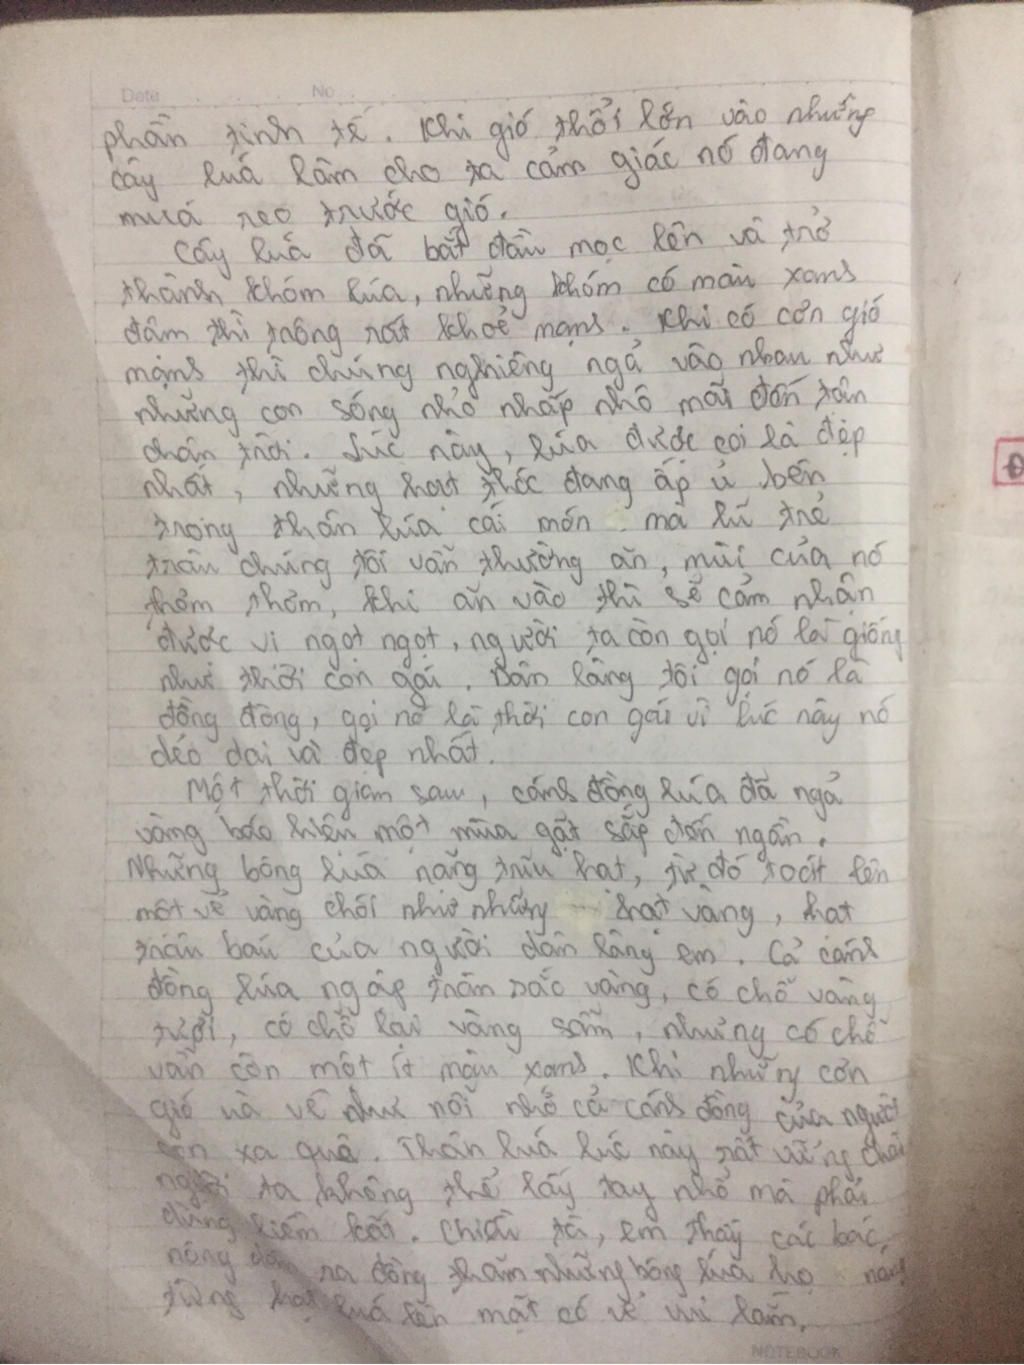 Date No
phần tinh tế. Khi gió thổi lớn vào những
cây luá làm cho ta cảm giác nó đang
muá reo trước gió.
Cây luá đã bắt đầu mọc lên và trở
thành khóm lúa, những khóm có màu xanh
đâm thì trông rất khoẻ mạnh. Khi có cơn gió
mạnh thì chúng nghiêng ngả vào nhau như
những con sóng nhỏ nhấp nhô mãi đến tận
chân trời. Lúc này, lúa được coi là đẹp
nhất, những hạt thóc đang ấp ủ bên
trong thân lúa cái món mà lũ trẻ
trâu chúng tôi vẫn thường ăn, mùi của nó
thơm thơm, khi ăn vào thì sẽ cảm nhận
được vi ngọt ngọt, người ta còn gọi nó là giống
như thời con gái. Dân làng tôi gọi nó là
đồng đòng, gọi nó là thời con gái vì lúc này nó
dẻo dai và đẹp nhất.
Một thời gian sau, cánh đồng lúa đã ngả
vàng báo hiệu một mùa gặt sắp đến ngần.
Những bông luá nặng trĩu hạt, từ đó toát lên
một vẻ vàng chói như những hạt vàng, hạt
trân báu của người dân làng em. Cả cánh
đồng lúa ngập tràn sắc vàng, có chỗ vàng
tươi, có chỗ lại vàng sẫm, nhưng có chỗ
vẫn còn một ít màu xanh. Khi những cơn
gió về như nỗi nhớ cả cánh đồng của người
con xa quê. Thân luá lúc này rất vững chãi
người ta không thể lấy tay nhổ mà phải
dùng liềm cắt. Chiều tà, em thấy các bác
nông dân ra đồng thăm những bông lúa họ nâng
từng hạt luá lên mặt có vẻ vui lắm.
NOTEBOOK